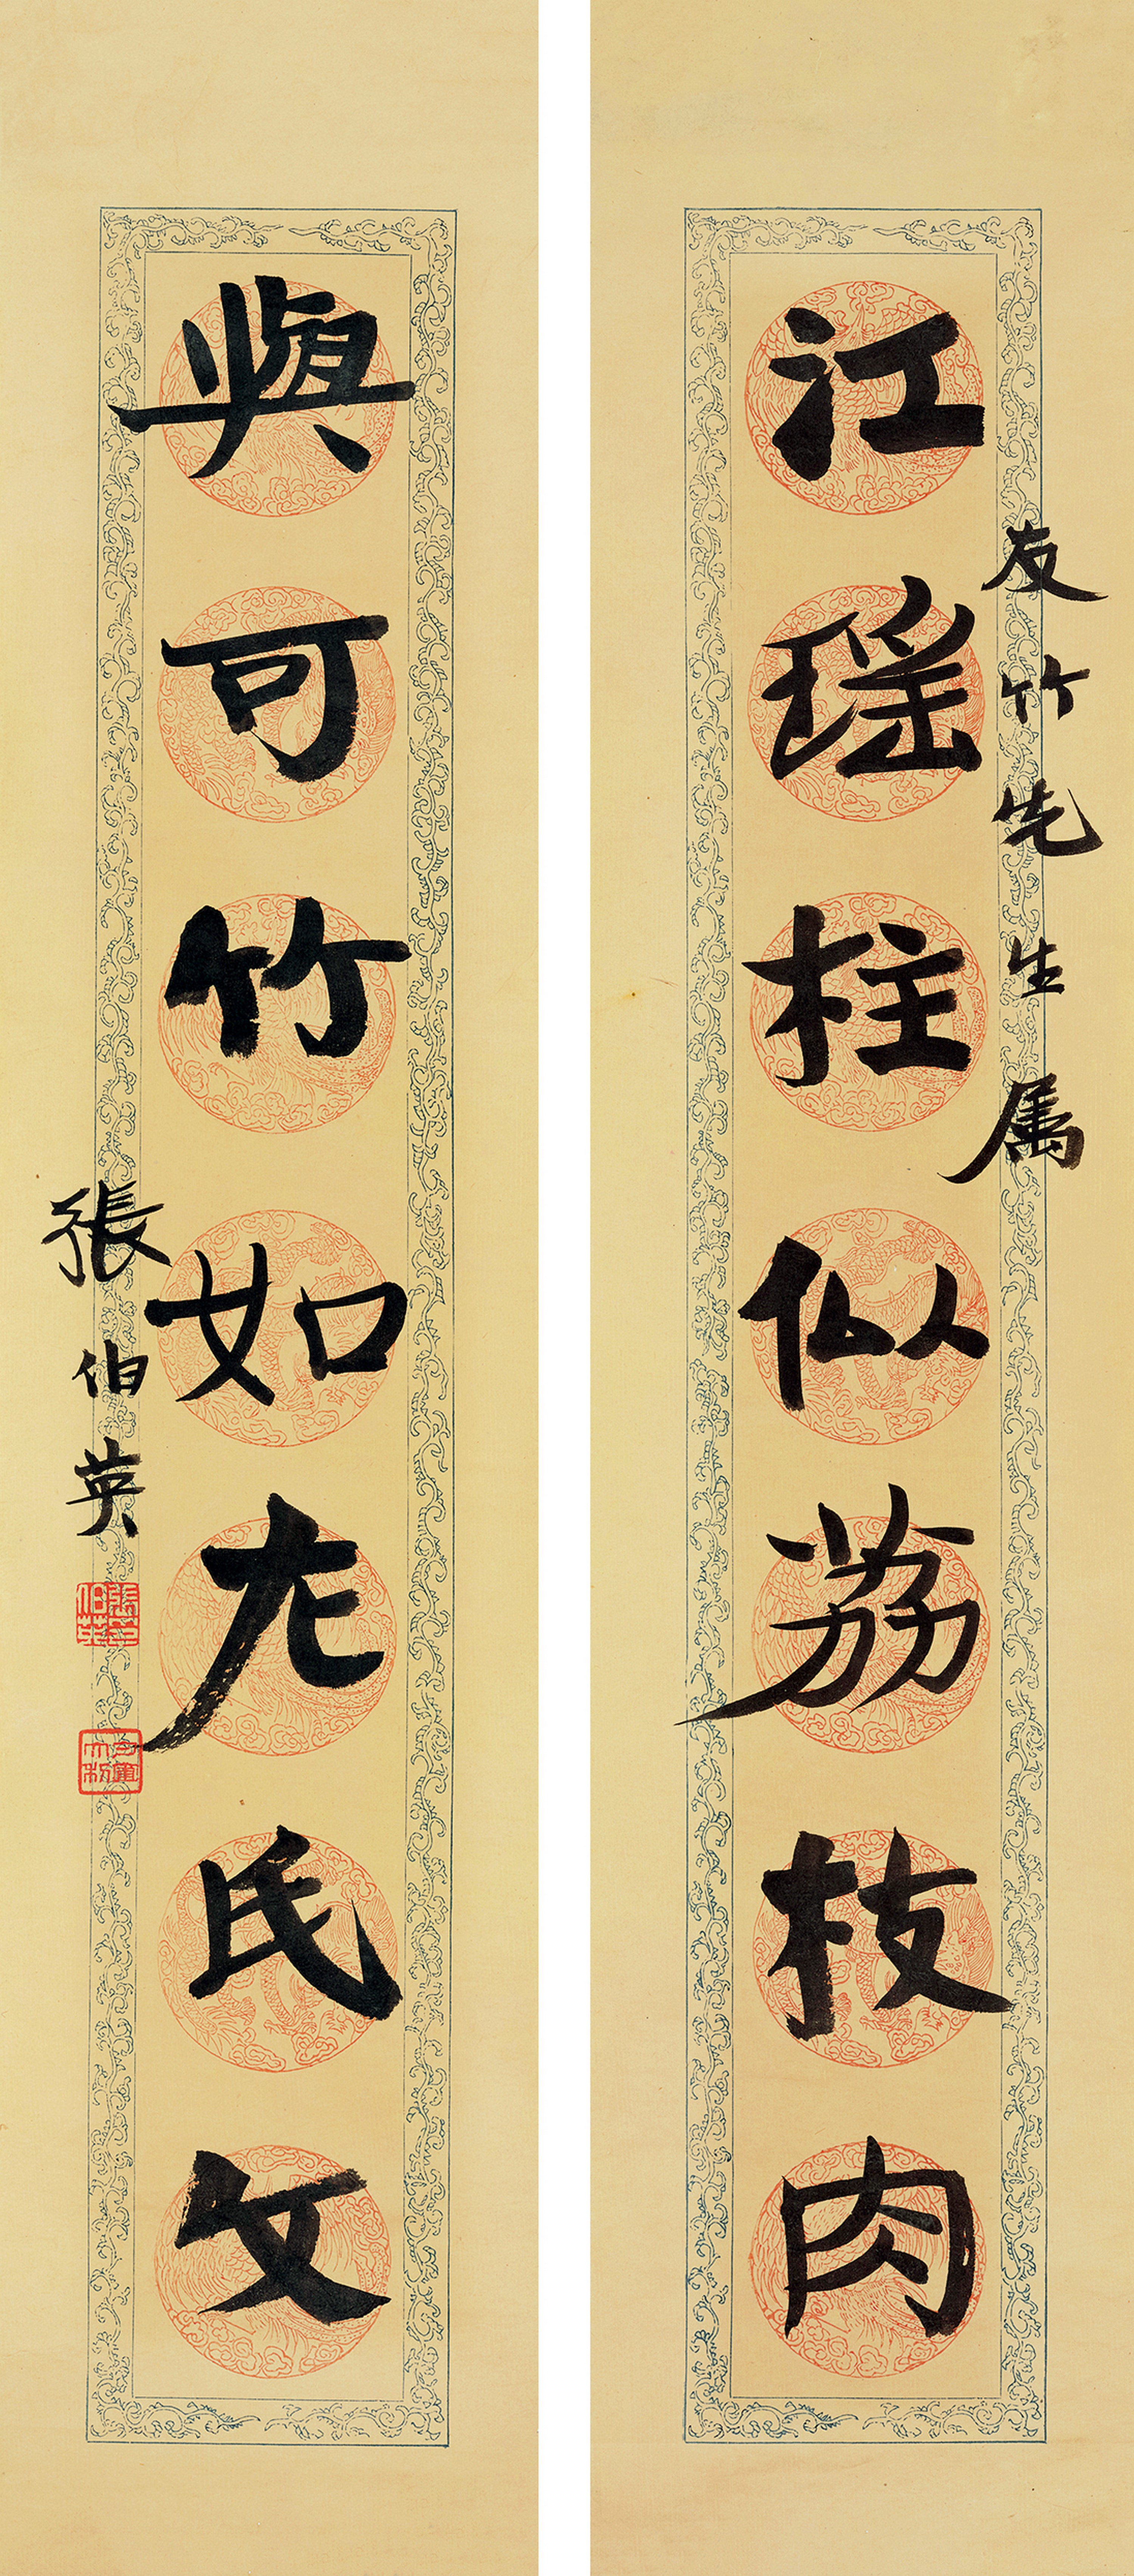 友竹先生属
江瑶柱似荔枝肉
與可竹如左氏文
張伯英